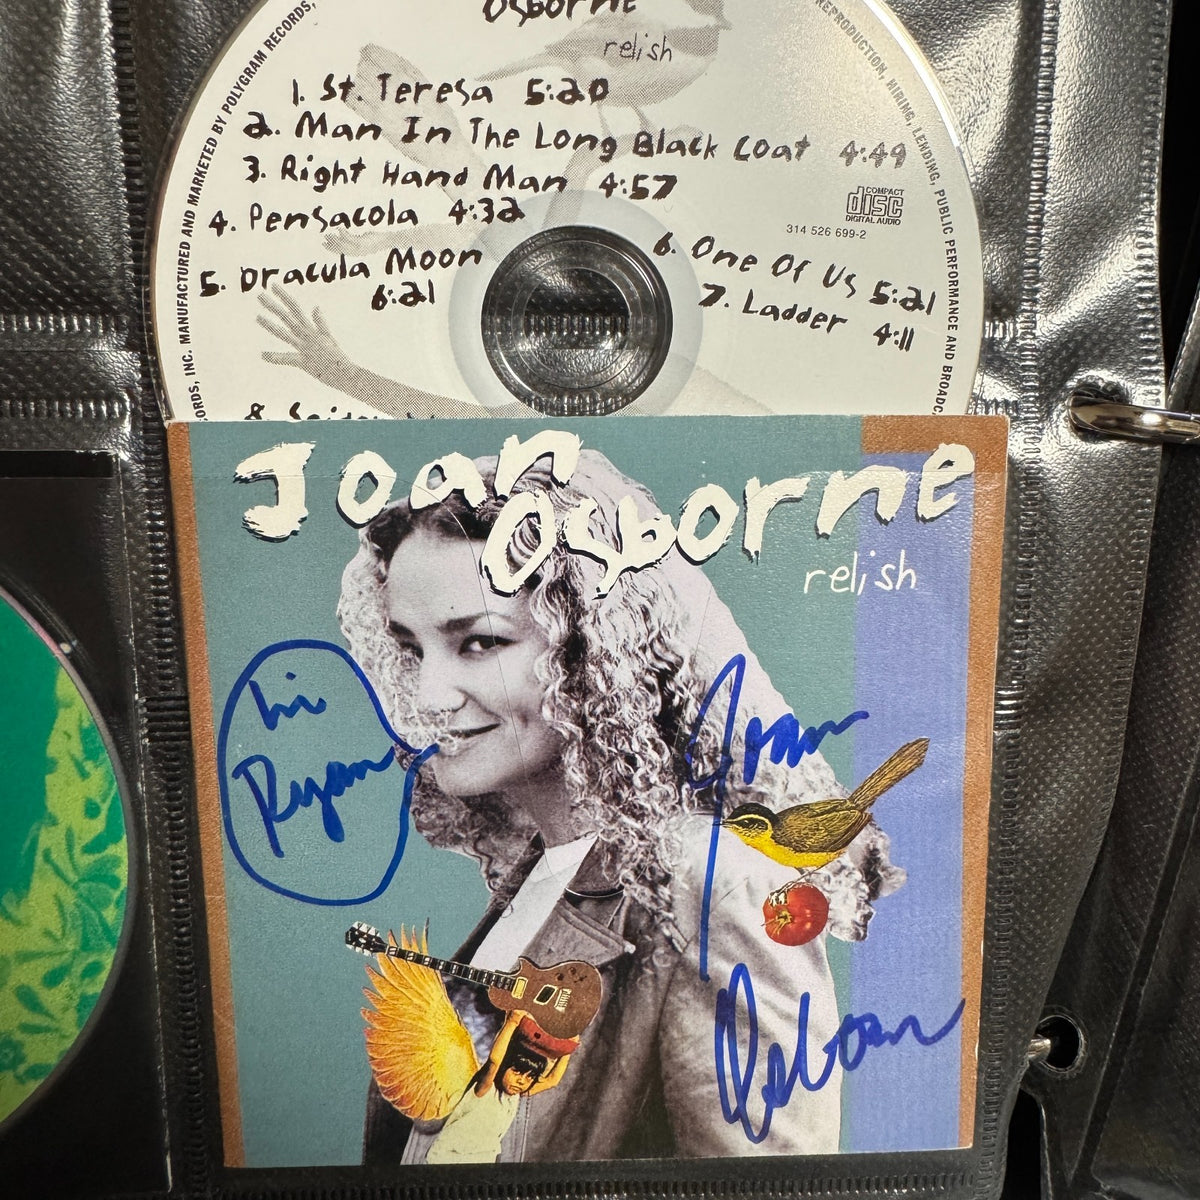 Osborne
relish
1. St. Teresa 5:20
2. Man In The Long Black Coat 4:49
3. Right Hand Man 4:57
4. Pensacola 4:32
5. Dracula Moon
6:21
6. One Of Us 5:21
7. Ladder 4:11
8.
COMPACT
disc
DIGITAL AUDIO
314 526 699-2
RECORDS, INC. MANUFACTURED AND MARKETED BY POLYGRAM RECORDS,
REPRODUCTION, HIRING, LENDING, PUBLIC PERFORMANCE AND BROADC
Joan
Osborne
relish
hi
Ryan
Joan
Osborne